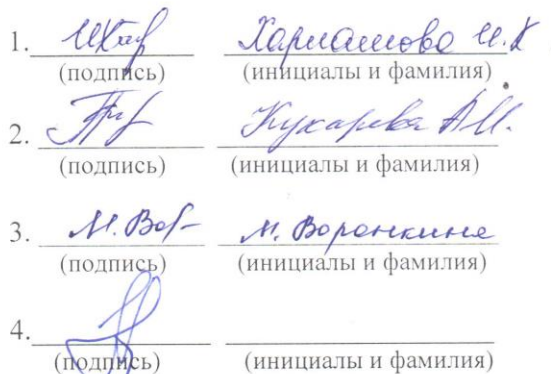 1. Харламова И.Х
(подпись) (инициалы и фамилия)
2. Кухарева А.И.
(подпись) (инициалы и фамилия)
3. М. Вор- М. Воронкина
(подпись) (инициалы и фамилия)
4.
(подпись) (инициалы и фамилия)